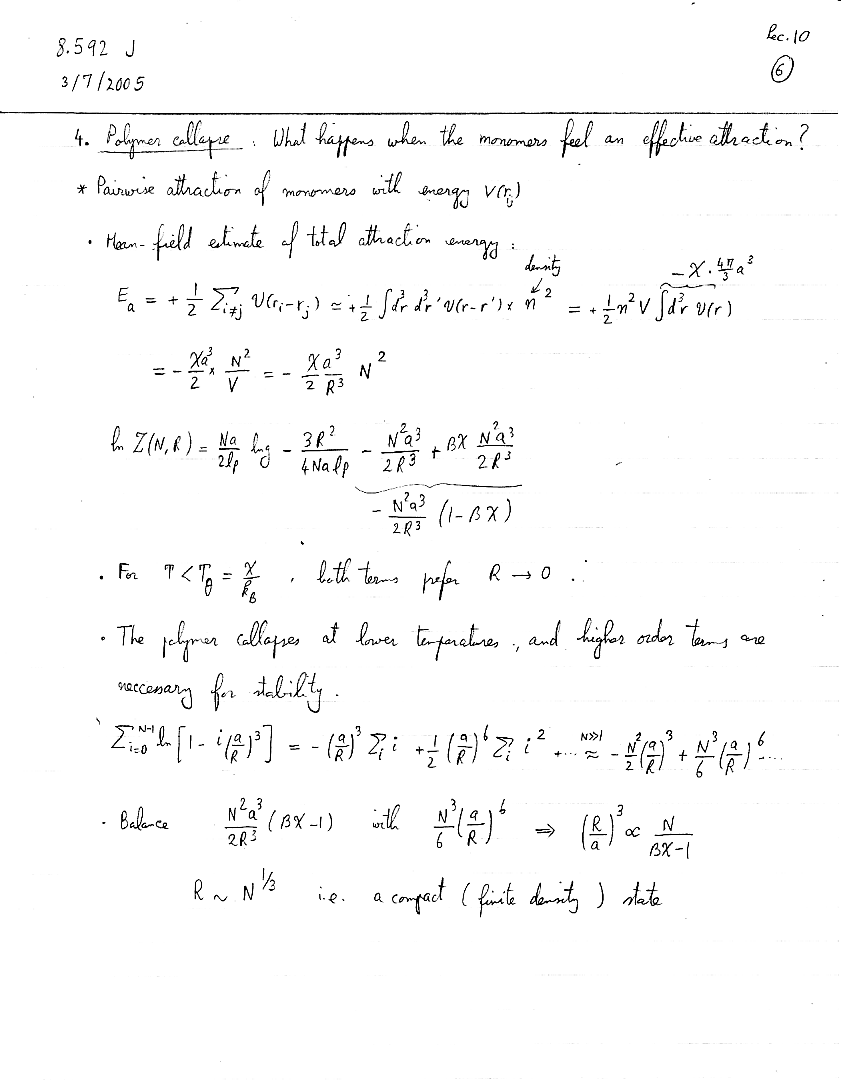 8.592 J
Lec. 10
3/7/2005
6
4. Polymer collapse : What happens when the monomers feel an effective attraction?
* Pairwise attraction of monomers with energy V(r_ij)
· Mean-field estimate of total attraction energy :
density
-χ·4π/3 a³
E_a = + 1/2 Σ_{i≠j} V(r_i-r_j) ≃ + 1/2 ∫d³r d³r' V(r-r') × n² = + 1/2 n² V ∫d³r V(r)
= - χa³/2 × N²/V = - χ/2 a³/R³ N²
ln Z(N,R) = Na/2l_p ln g - 3R²/4Na l_p - N²a³/2R³ + βχ N²a³/2R³
- N²a³/2R³ (1-βχ)
· For T < T_θ = χ/k_B , both terms prefer R → 0 .
· The polymer collapses at lower temperatures , and higher order terms are
neccesary for stability.
Σ_{i=0}^{N-1} ln [1 - i(a/R)³] = - (a/R)³ Σ_i i + 1/2 (a/R)⁶ Σ_i i² + ... ≈^{N≫1} - N²/2 (a/R)³ + N³/6 (a/R)⁶ ...
· Balance N²a³/2R³ (βχ-1) with N³/6 (a/R)⁶ ⇒ (R/a)³ ∝ N/βχ-1
R ~ N^{1/3} i.e. a compact (finite density) state